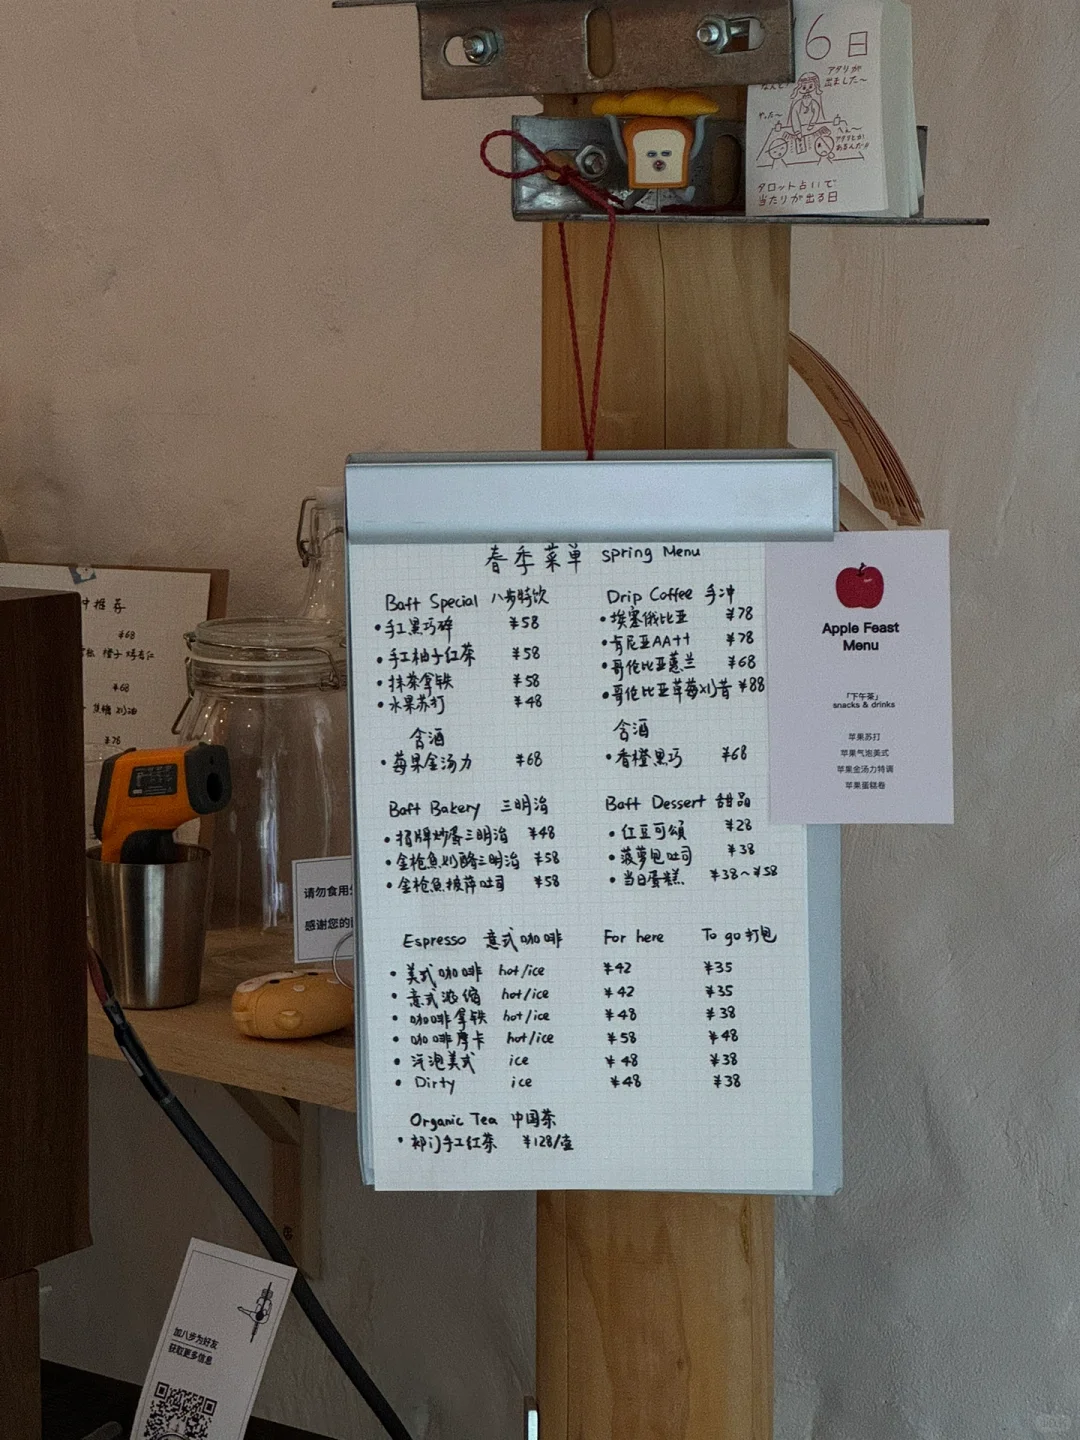 6日
アタリが
出ました〜
やった〜
へぇ〜
アタリとか
あるんだ
タロット占いで
当たりが出る日
春季菜单 Spring Menu
Baft Special 八步特饮
• 手工黑巧碎 ¥58
• 手工柚子红茶 ¥58
• 抹茶拿铁 ¥58
• 水果苏打 ¥48
含酒
• 莓果金汤力 ¥68
Drip Coffee 手冲
• 埃塞俄比亚 ¥78
• 肯尼亚AA++ ¥78
• 哥伦比亚蕙兰 ¥68
• 哥伦比亚草莓刈昔 ¥88
含酒
• 香橙黑巧 ¥68
Baft Bakery 三明治
• 招牌炒蛋三明治 ¥48
• 金枪鱼刈酪三明治 ¥58
• 金枪鱼披萨吐司 ¥58
Baft Dessert 甜品
• 红豆可颂 ¥28
• 菠萝包吐司 ¥38
• 当日蛋糕 ¥38~¥58
Espresso 意式咖啡 For here To go 打包
• 美式咖啡 hot/ice ¥42 ¥35
• 意式浓缩 hot/ice ¥42 ¥35
• 咖啡拿铁 hot/ice ¥48 ¥38
• 咖啡摩卡 hot/ice ¥58 ¥48
• 汽泡美式 ice ¥48 ¥38
• Dirty ice ¥48 ¥38
Organic Tea 中国茶
• 祁门手工红茶 ¥128/壶
Apple Feast
Menu
「下午茶」
snacks & drinks
苹果苏打
苹果气泡美式
苹果金汤力特调
苹果蛋糕卷
冲推荐
¥68
橙子 烤杏仁
¥68
焦糖 刈油
¥78
请勿食用
感谢您的
加八步为好友
获取更多信息